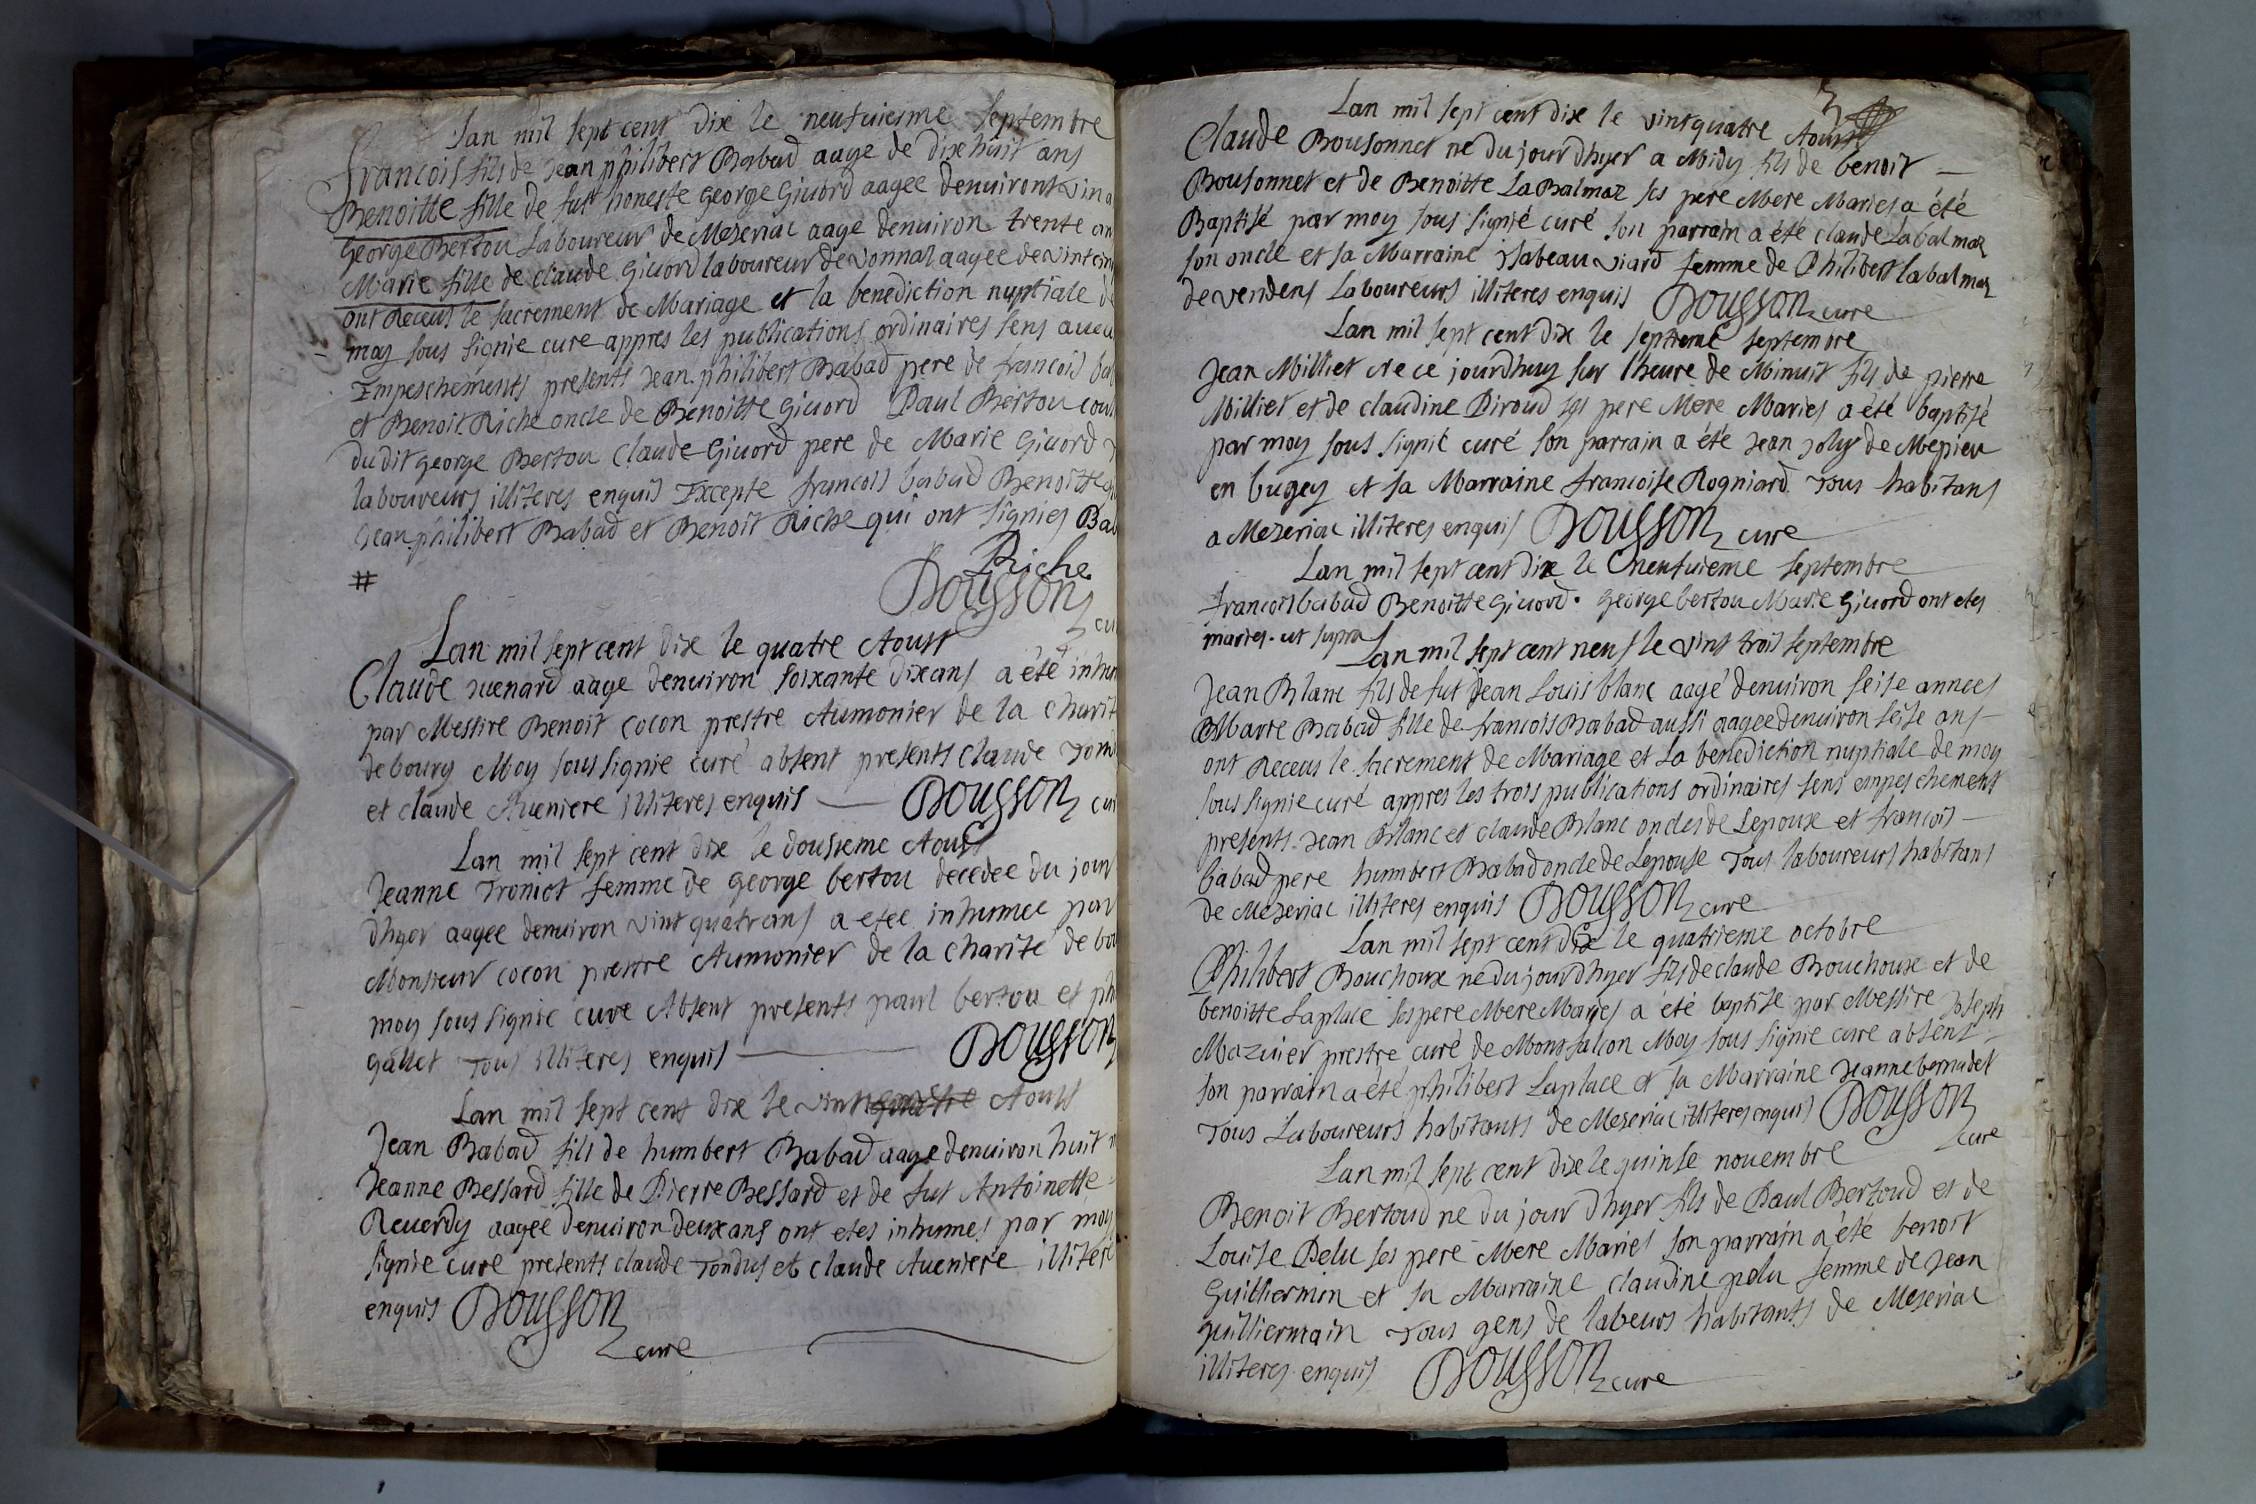 Lan mil sept cent dix le neufuieme septembre
francois fils de Jean philibert Babad aage de dixhuit ans
Benoitte fille de fut honeste George Giuord aagee denuiront vin
George Bertou Laboureur de Meseriac aage denuiron trente an
Marie fille de claude Giuord laboureur de vonnas aagee de vint cin
ont Receus le sacrement de Mariage et la benediction nuptiale de
moy sous signie cure appres les publications ordinaires sens aucu
Empeschements presents Jean philibert Babad pere de francois bab
et Benoit Riche oncle de Benoitte Giuord Paul Bertou cou
dudit george Bertou Claude Giuord pere de Marie Giuord
laboureurs illiteres enquis Excepte francois babad Benoitte
Jean philibert Babad et Benoit Riche qui ont signies Bab
Riche
# Dousson cu
Lan mil sept cent dix le quatre Aoust
Claude Juenard aage denuiron soixante dix ans a été inhum
par Messire Benoit cocon prestre Aumonier de la charit
de bourg Moy sous signie curé absent presents Claude Tond
et claude Aueniere illiteres enquis Dousson cur
Lan mil sept cent dix le dousieme Aoust
Jeanne Troniot femme de george bertou decedee du jour
dhyer aagee denuiron vint quatrans a etee inhumee par
Monsieur cocon prestre Aumonier de la charité de bou
moy sous signie cure Absent presents paul bertou et ph
gallet Tous illiteres enquis Dousson
Lan mil sept cent dix le vint quatre Aoust
Jean Babad fils de humbert Babad aage denuiron huit
Jeanne Bessard fille de Pierre Bessard et de fut Antoinette
Reuerdy aagee denuiron deux ans ont etes inhumes par moy
signie cure presents claude Tondus et claude Aueniere illitere
enquis Dousson
cure
Lan mil sept cent dix le vint quatre Aoust
Claude Bousonnet ne du jour dhyer a Midy fils de benoit
Bousonnet et de Benoitte La Balmaz ses pere Mere Maries a été
Baptisé par moy sous signié curé son parrain a été claude Labalmaz
son oncle et sa Marraine Isabeau viard femme de Philibert labalmaz
de vendens Laboureurs illiteres enquis Dousson cure
Lan mil sept cent dix le septieme septembre
Jean Milliet ne ce jourdhuy sur lheure de Minuit fils de pierre
Milliet et de claudine Piroud ses pere Mere Maries a été baptisé
par moy sous signié curé son parrain a été Jean Joly de Mepieu
en bugey et sa Marraine francoise Rogniard Tous habitans
a Meseriac illiteres enquis Dousson cure
Lan mil sept cent dix le neufuieme septembre
francois babad Benoitte Giuord. George bertou Marie Giuord ont etes
maries. ut supra
Lan mil sept cent neuf le vint trois septembre
Jean Blanc fils de fut Jean Louis blanc aagé denuiron seise annees
Marie Babad fille de francois Babad aussi aagee denuiron seise ans
ont Receus le sacrement de Mariage et La benediction nuptiale de moy
sous signie curé appres les trois publications ordinaires sens empeschements
presents Jean Blanc et claude Blanc oncles de Lepoux et francois
babad pere humbert Babad oncle de Lepouse Tous laboureurs habitans
de Meseriac illiteres enquis Dousson cure
Lan mil sept cent dix le quatrieme octobre
Philibert Bouchoux né du jour dhyer fils de claude Bouchoux et de
benoitte Laplace ses pere Mere Maries a été baptisé par Messire Joseph
Mazuier prestre curé de Monsfalcon Moy sous signie cure absent
son parrain a été philibert Laplace et sa Marraine Jeanne bernadet
Tous Laboureurs habitants de Meseriac illiteres enquis Dousson
cure
Lan mil sept cent dix le quinse nouembre
Benoit Bertoud ne du jour dhyer fils de Paul Bertoud et de
Louise Pelu ses pere Mere Maries son parrain a été benoit
Guilliermin et sa Marraine claudine pelu femme de Jean
guilliermain Tous gens de labeurs habitants de Meseriac
illiteres enquis Dousson cure